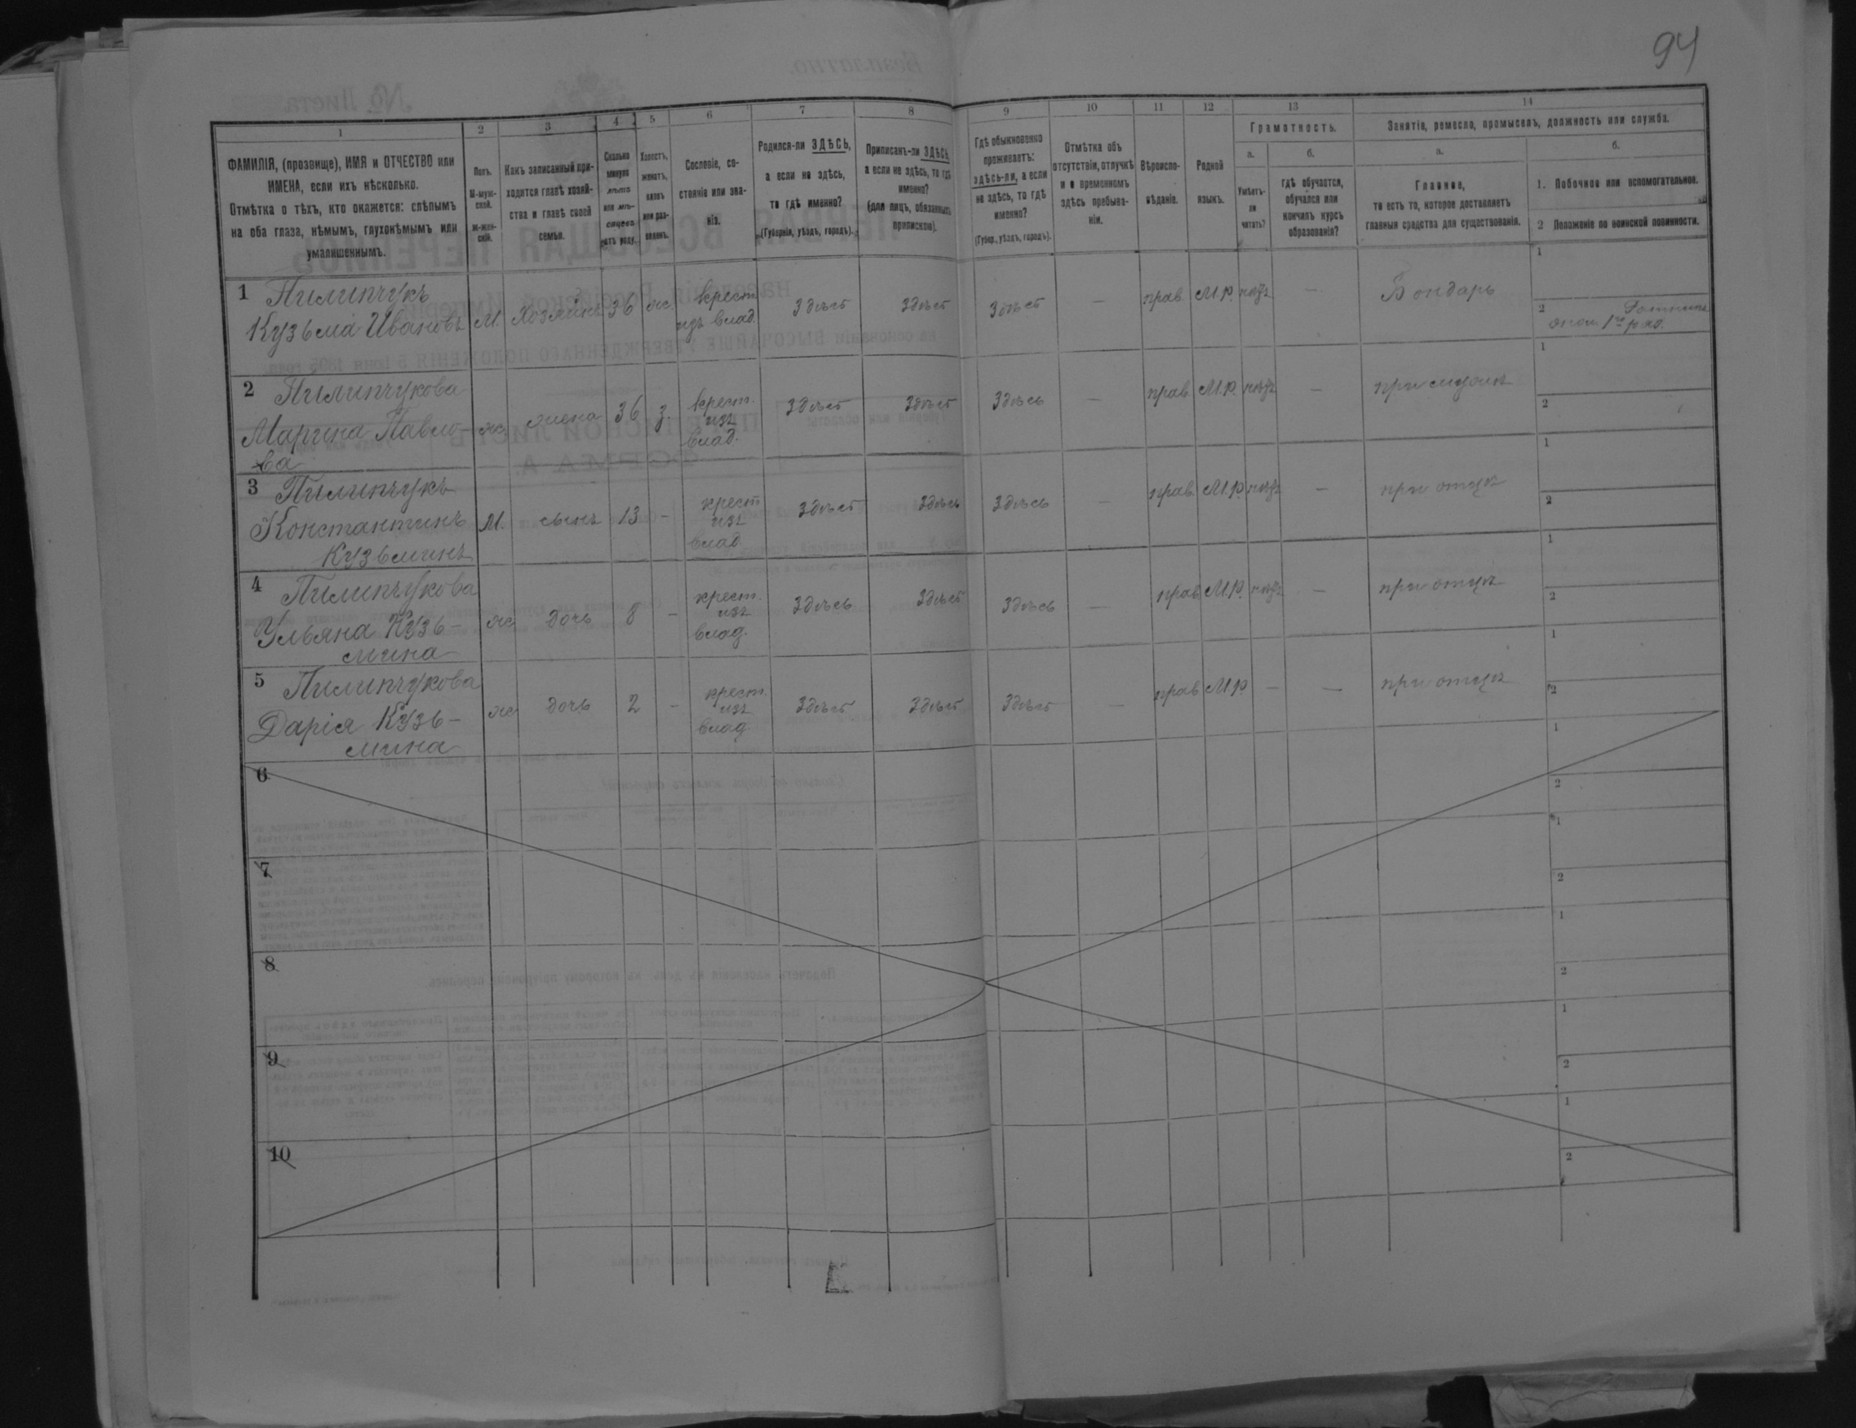 94
1 2 3 4 5 6 7 8 9 10 11 12 13 14
ФАМИЛІЯ, (прозвище), ИМЯ и ОТЧЕСТВО или
ИМЕНА, если ихъ нѣсколько.
Отмѣтка о тѣхъ, кто окажется: слѣпымъ
на оба глаза, нѣмымъ, глухонѣмымъ или
умалишеннымъ.
Полъ.
М-муж-
ской.
Ж-жен-
скій.
Какъ записанный при-
ходится главѣ хозяй-
ства и главѣ своей
семьи.
Сколько
минуло
лѣтъ
или мѣ-
сяцевъ
отъ роду.
Холостъ,
женатъ,
вдовъ
или раз-
веденъ.
Сословіе, со-
стояніе или зва-
ніе.
Родился-ли ЗДѢСЬ,
а если не здѣсь,
то гдѣ именно?
(Губернія, уѣздъ, городъ).
Приписанъ-ли ЗДѢСЬ,
а если не здѣсь, то гдѣ
именно?
(для лицъ, обязанныхъ
припискою).
Гдѣ обыкновенно
проживаетъ:
здѣсь-ли, а если
не здѣсь, то гдѣ
именно?
(Губер., уѣздъ, городъ).
Отмѣтка объ
отсутствіи, отлучкѣ
и о временномъ
здѣсь пребыва-
ніи.
Вѣроиспо-
вѣданіе.
Родной
языкъ.
Грамотность.
а. б.
Умѣетъ-
ли
читать?
гдѣ обучается,
обучался или
кончилъ курсъ
образованія?
Занятіе, ремесло, промыселъ, должность или служба.
а. б.
Главное,
то есть то, которое доставляетъ
главныя средства для существованія.
1. Побочное или вспомогательное.
2 Положеніе по воинской повинности.
1 Пилипчукъ
Кузьма Ивановъ М. Хозяинъ 36 ж. крест. изъ влад. Здѣсь Здѣсь Здѣсь — прав. М.р. нѣтъ — Бондарь 1
2 Ратник
ополч 1го раз.
2 Пилипчукова
Марина Павло-
ва ж. жена 36 з. крест. изъ влад. Здѣсь Здѣсь Здѣсь — прав. М.р. нѣтъ — при мужѣ 1
2
3 Пилипчукъ
Константинъ
Кузьминъ М. сынъ 13 - крест. изъ влад. Здѣсь Здѣсь Здѣсь — прав. М.р. нѣтъ — при отцѣ 1
2
4 Пилипчукова
Ульяна Кузь-
мина ж. дочь 8 - крест. изъ влад. Здѣсь Здѣсь Здѣсь — прав. М.р. нѣтъ — при отцѣ 1
2
5 Пилипчукова
Дарія Кузь-
мина ж. дочь 2 - крест. изъ влад. Здѣсь Здѣсь Здѣсь — прав. М.р — — при отцѣ 1
2
6 1
2
7 1
2
8 1
2
9 1
2
10 1
2